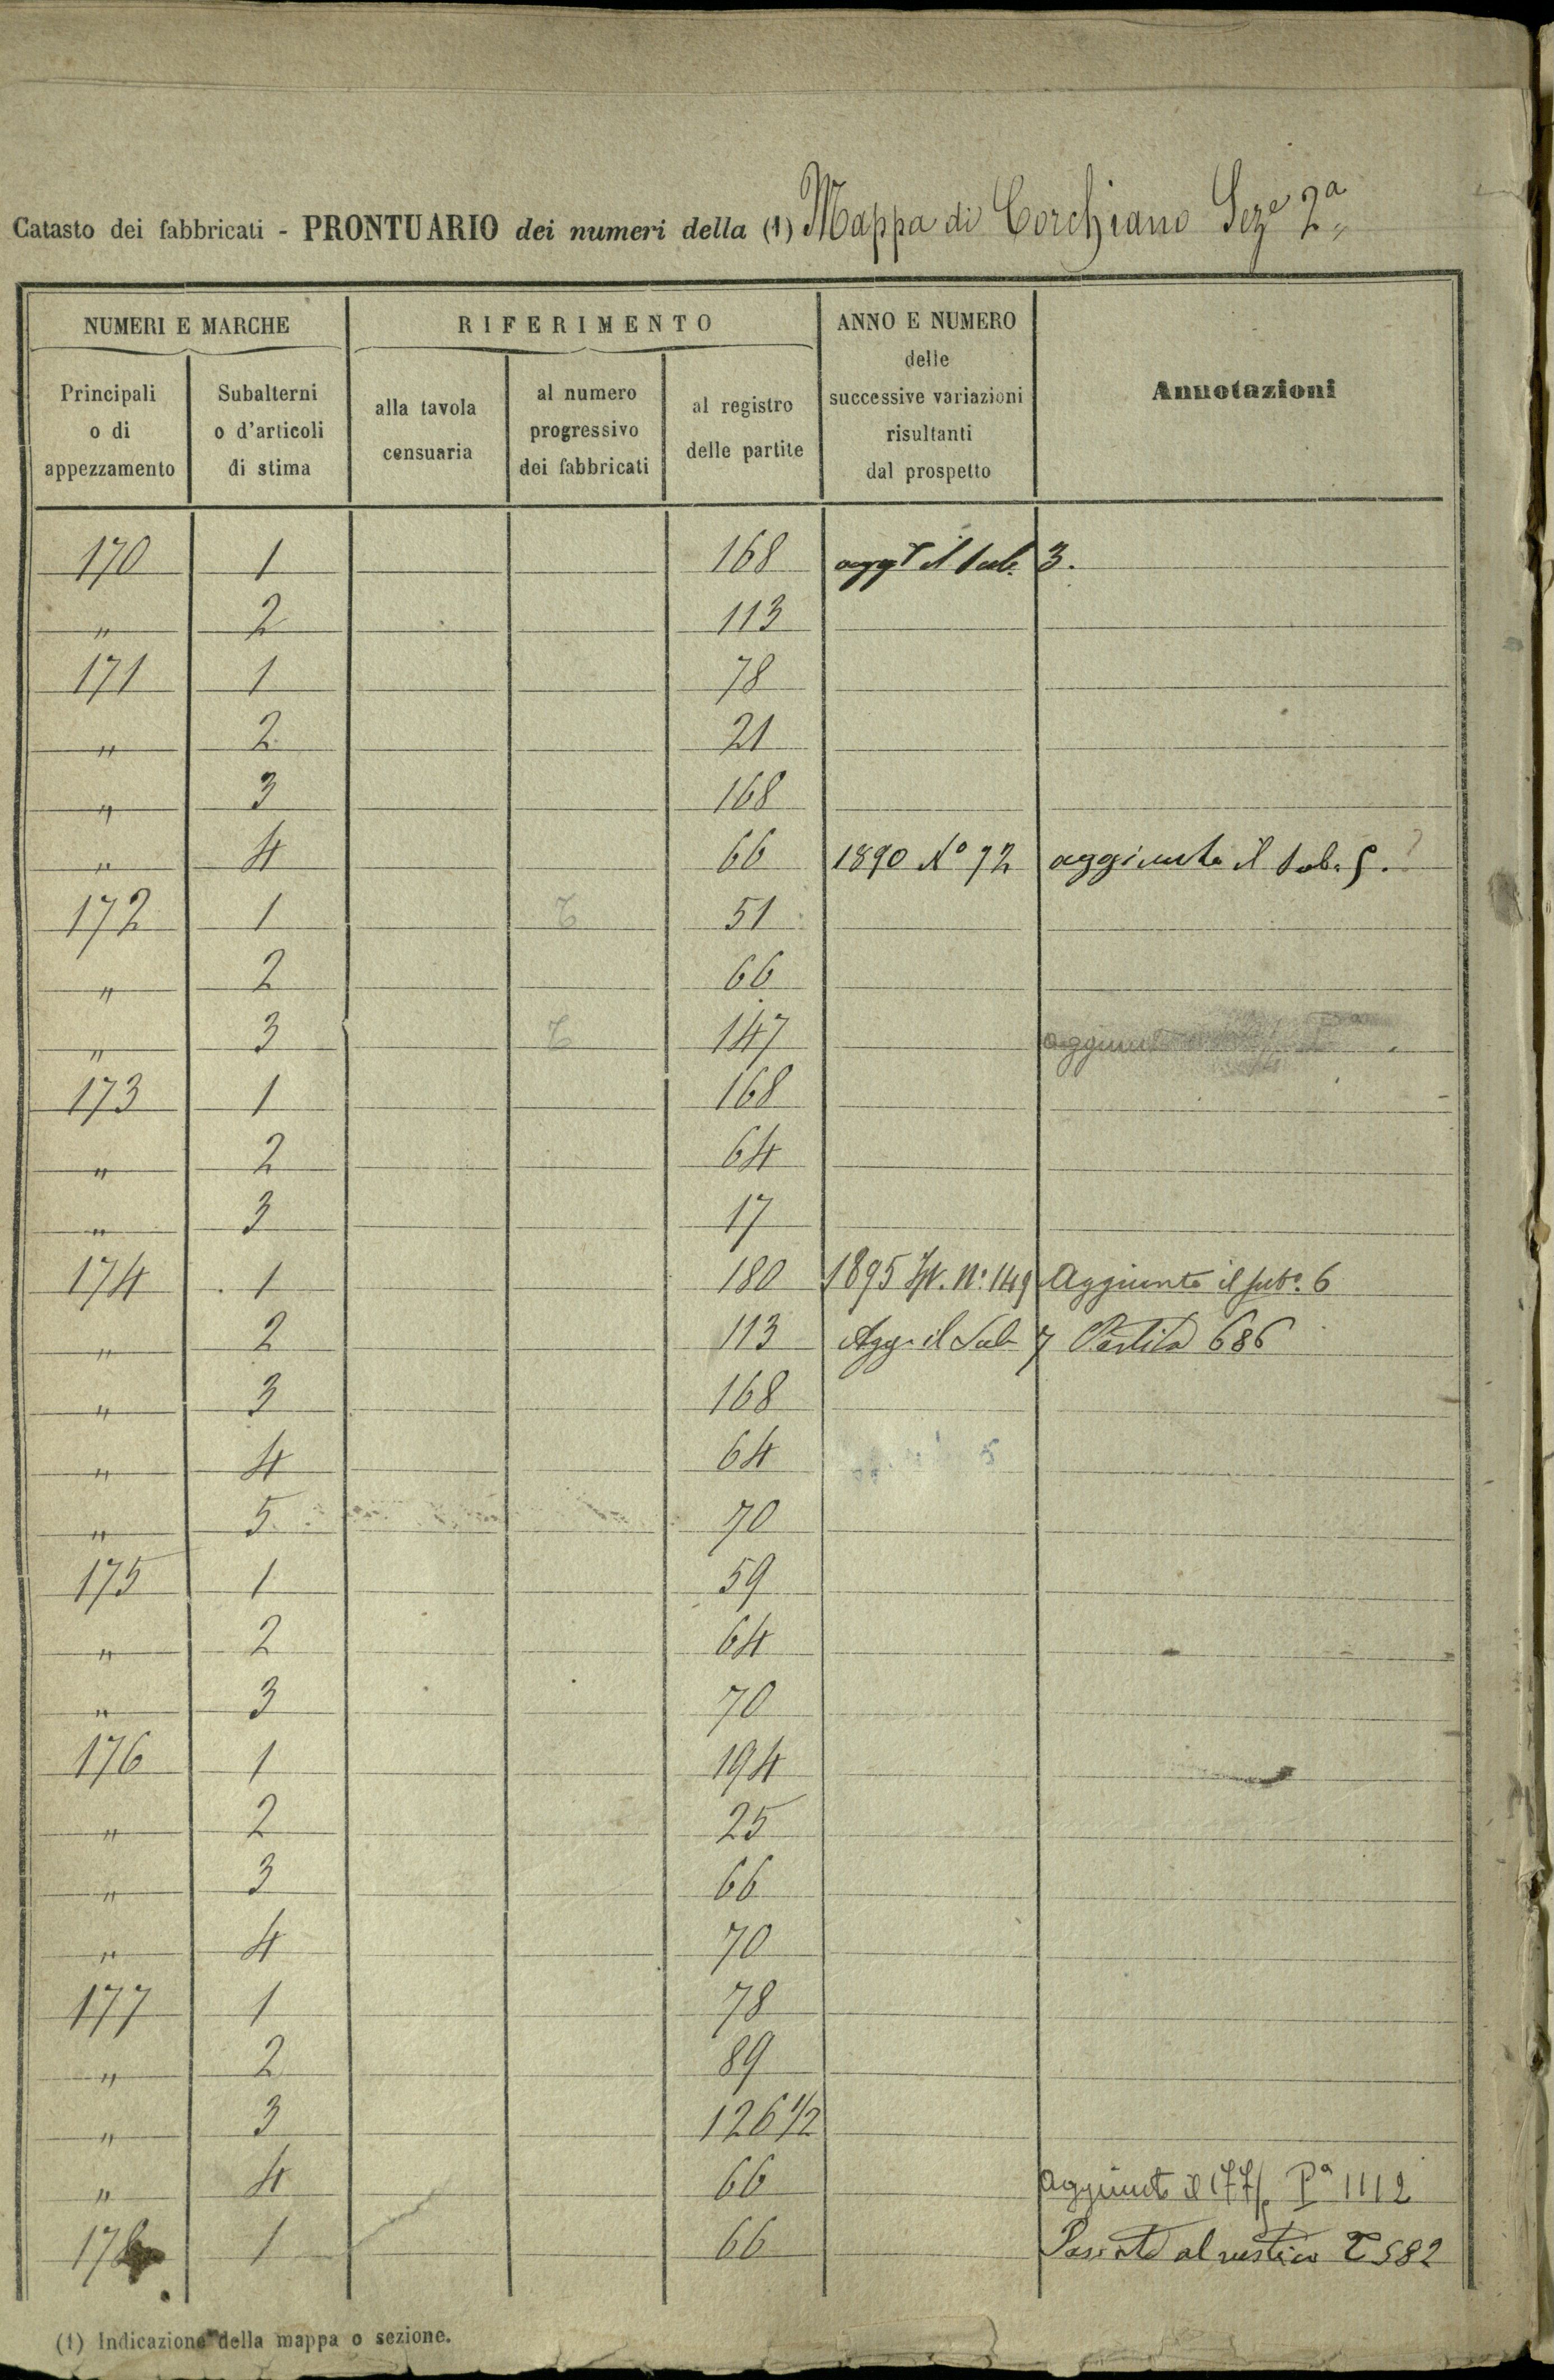 Catasto dei fabbricati - PRONTUARIO dei numeri della (1) Mappa di Corchiano Sez.e 2.a
NUMERI E MARCHE RIFERIMENTO ANNO E NUMERO delle successive variazioni risultanti dal prospetto Annotazioni
Principali o di appezzamento Subalterni o d'articoli di stima alla tavola censuaria al numero progressivo dei fabbricati al registro delle partite
170 1 168 aggto il sub. 3.
" 2 113
171 1 78
" 2 21
" 3 168
" 4 66 1890 No 72 aggiunto il sub. 5.
172 1 51
" 2 66
" 3 147 aggiunt
173 1 168
" 2 64
" 3 17
174 1 180 1895 No. 149 Aggiunto il subo. 6
" 2 113 Agg. il Sub 7 Partita 686
" 3 168
" 4 64
" 5 70
175 1 59
" 2 64
" 3 70
176 1 194
" 2 25
" 3 66
" 4 70
177 1 78
" 2 89
" 3 126 1/2
" 4 66 aggiunto il 177/5 Pa 1112
178 1 66 Passato al rustico 582
(1) Indicazione della mappa o sezione.